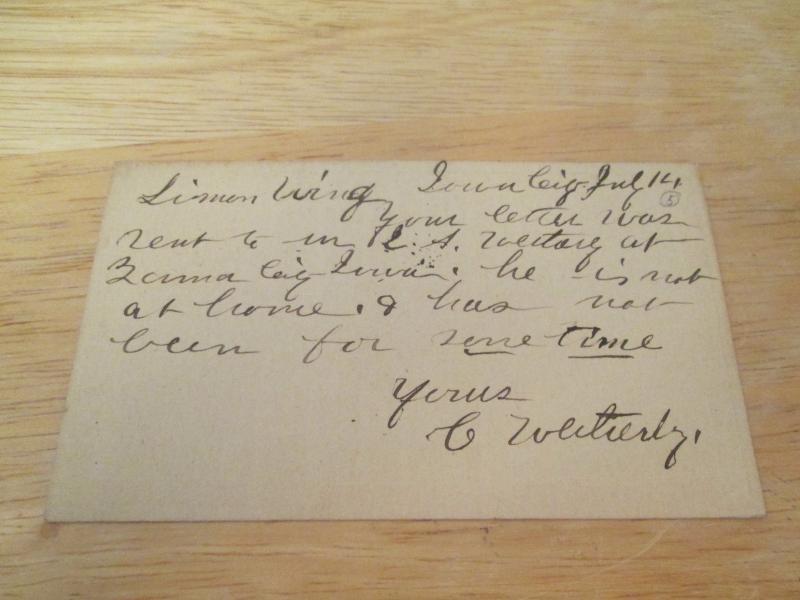 Simon Wing Iowa City July 14,
5
your letter was
sent to m L. S. at
City Iowa. he is not
at home. & has not
been for some time
Yours
C Wetherby.